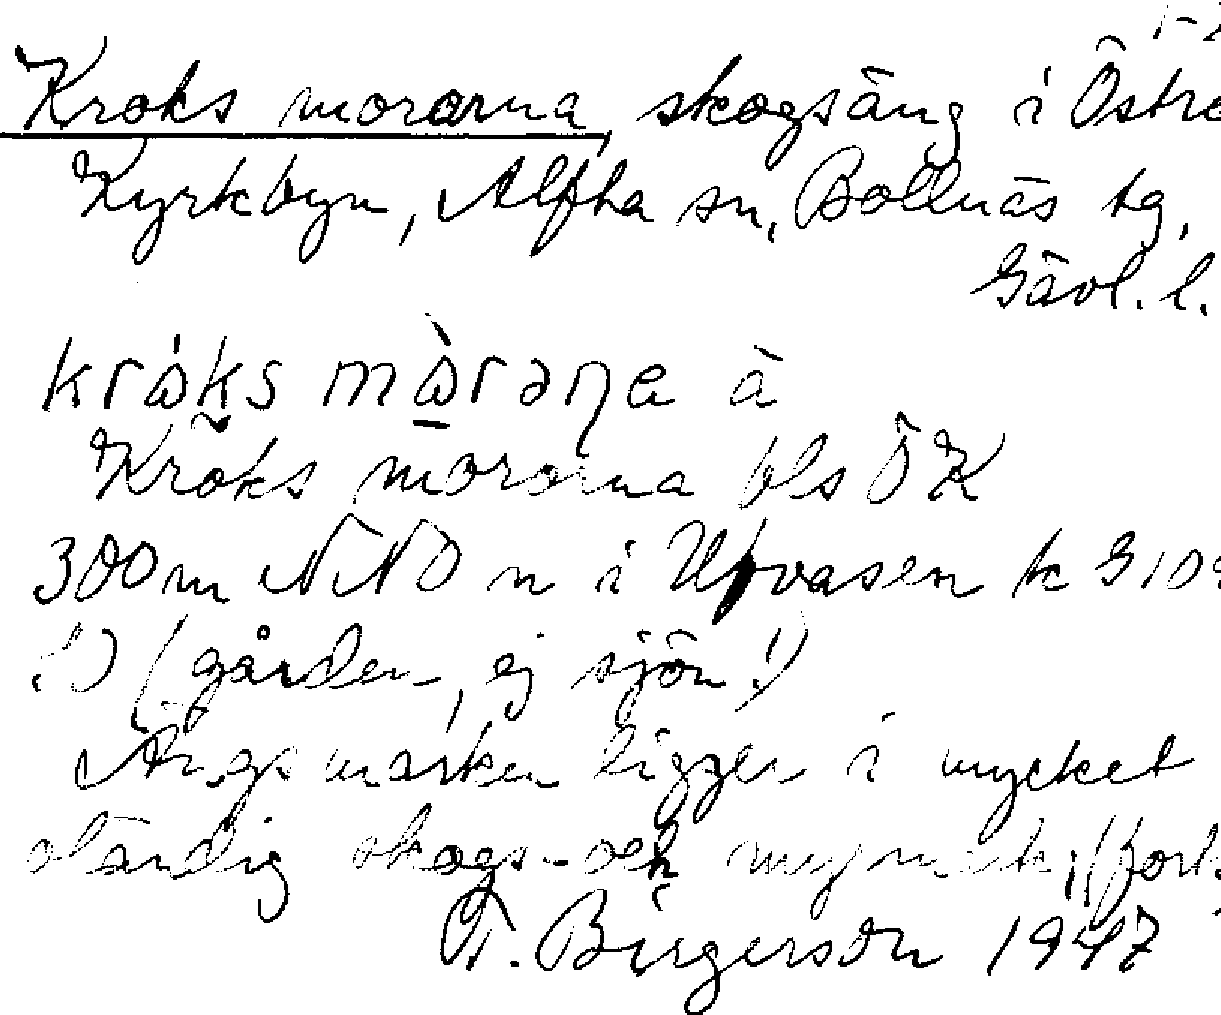 1-2
Kroks morarna, skogsäng i Östra
Kyrkbyn, Alfta sn, Bollnäs tg,
Gävl. l.
krɷ́ks mɷ̀rəŋa ä
Kroks morarna bls ÖK
300 m NNO n i Uppvasen k G 109
(gården, ej sjön!)
Ängsmarken ligger i mycket
oländig skogs- och myrmark, (forts.
T. Birgerson 1947